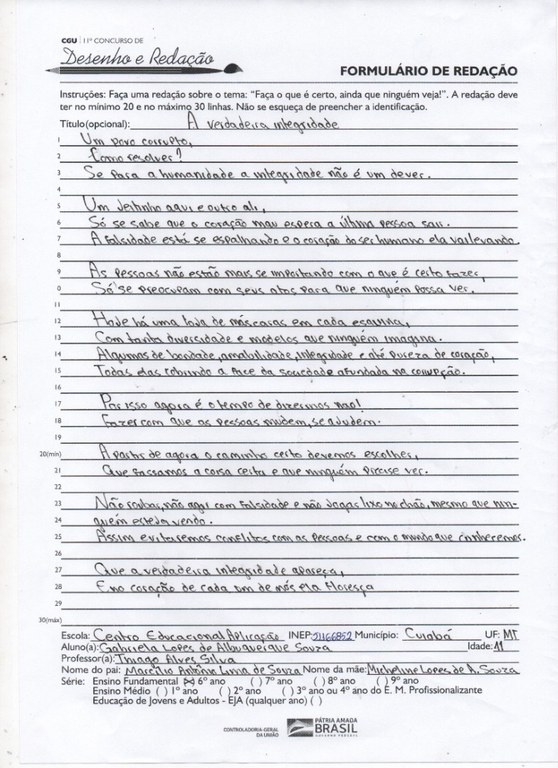 CGU | 11º CONCURSO DE
Desenho e Redação
FORMULÁRIO DE REDAÇÃO
Instruções: Faça uma redação sobre o tema: “Faça o que é certo, ainda que ninguém veja!”. A redação deve
ter no mínimo 20 e no máximo 30 linhas. Não se esqueça de preencher a identificação.
Título(opcional): A verdadeira integridade
1 Um povo corrupto,
2 Como resolver?
3 Se para a humanidade a integridade não é um dever.
4
5 Um Jeitinho aqui e outro ali,
6 Só se sabe que o coração mau espera a última pessoa sair.
7 A falsidade está se espalhando e o coração do ser humano ela vai levando.
8
9 As pessoas não estão mais se importando com o que é certo fazer,
0 Só se preocupam com seus atos para que ninguém possa ver.
11
12 Hoje há uma loja de máscaras em cada esquina,
13 Com tanta diversidade e modelos que ninguém imagina.
14 Algumas de bondade, amabilidade, integridade e até pureza de coração,
15 Todas elas cobrindo a face da sociedade afundada na corrupção.
16
17 Por isso agora é o tempo de dizermos não!
18 Fazer com que as pessoas mudem, se ajudem.
19
20(mín) A partir de agora o caminho certo devemos escolher,
21 Que façamos a coisa certa e que ninguém precise ver.
22
23 Não roubar, não agir com falsidade e não jogar lixo no chão, mesmo que nin-
24 guém esteja vendo.
25 Assim evitaremos conflitos com as pessoas e com o mundo que conhecemos.
26
27 Que a verdadeira integridade apareça,
28 E no coração de cada um de nós ela floresça
29
30(máx)
Escola: Centro Educacional Aplicação INEP: 51166852 Município: Cuiabá UF: MT
Aluno(a): Gabriela Lopes de Albuquerque Souza Idade: 11
Professor(a): Thiago Alves Silva
Nome do pai: Marcilio Antônio Lima de Souza Nome da mãe: Micheline Lopes de A. Souza
Série: Ensino Fundamental (X) 6º ano ( ) 7º ano ( ) 8º ano ( ) 9º ano
Ensino Médio ( ) 1º ano ( ) 2º ano ( ) 3º ano ou 4º ano do E. M. Profissionalizante
Educação de Jovens e Adultos - EJA (qualquer ano) ( )
CONTROLADORIA-GERAL
DA UNIÃO
PÁTRIA AMADA
BRASIL
GOVERNO FEDERAL